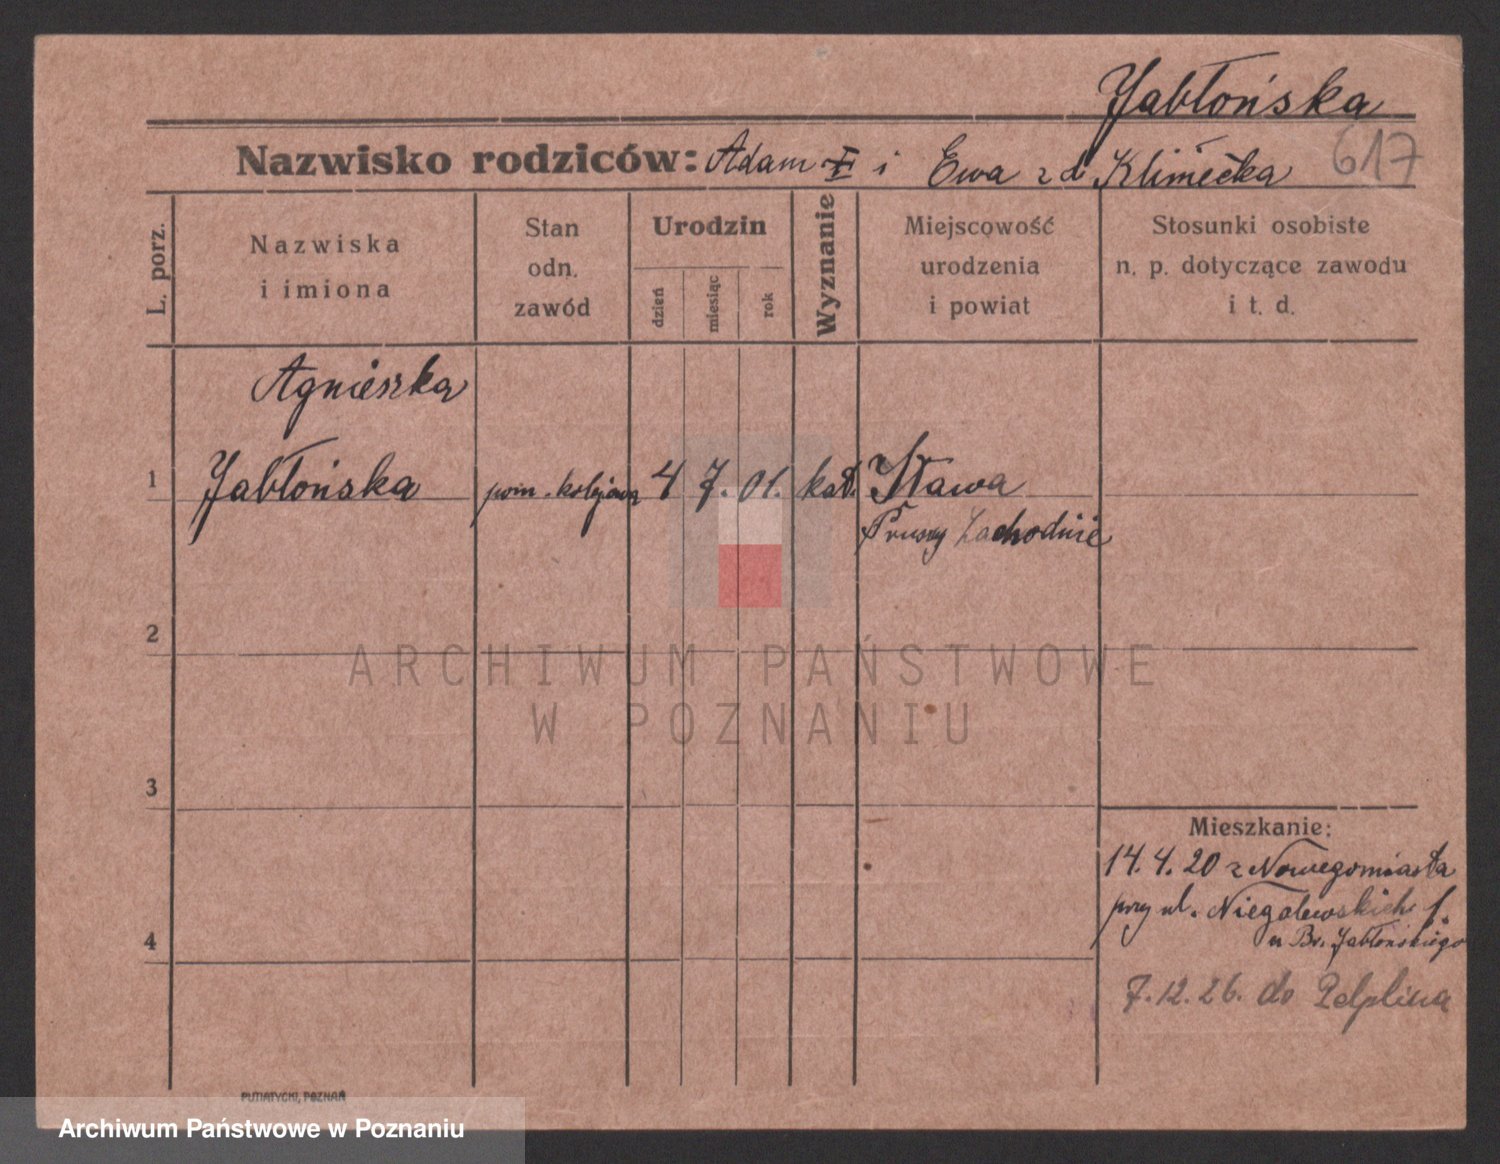 Jabłońska
617
Nazwisko rodziców: Adam i Ewa z d Klimecka
L. porz.
Nazwiska
i imiona
Stan
odn.
zawód
Urodzin
dzień
miesiąc
rok
Wyznanie
Miejscowość
urodzenia
i powiat
Stosunki osobiste
n. p. dotyczące zawodu
i t. d.
Agnieszka
1 Jabłońska pom. kolejowa 4 7. 01. kat. Iława
Prusy Zachodnie
2
ARCHIWUM PAŃSTWOWE
W POZNANIU
3
Mieszkanie:
14.4.20 z Nowegomiasta
przy ul. Niegolewskich
4
u Br. Jabłońskiego
7.12.26. do Pelplina
PUTIATYCKI, POZNAŃ
Archiwum Państwowe w Poznaniu